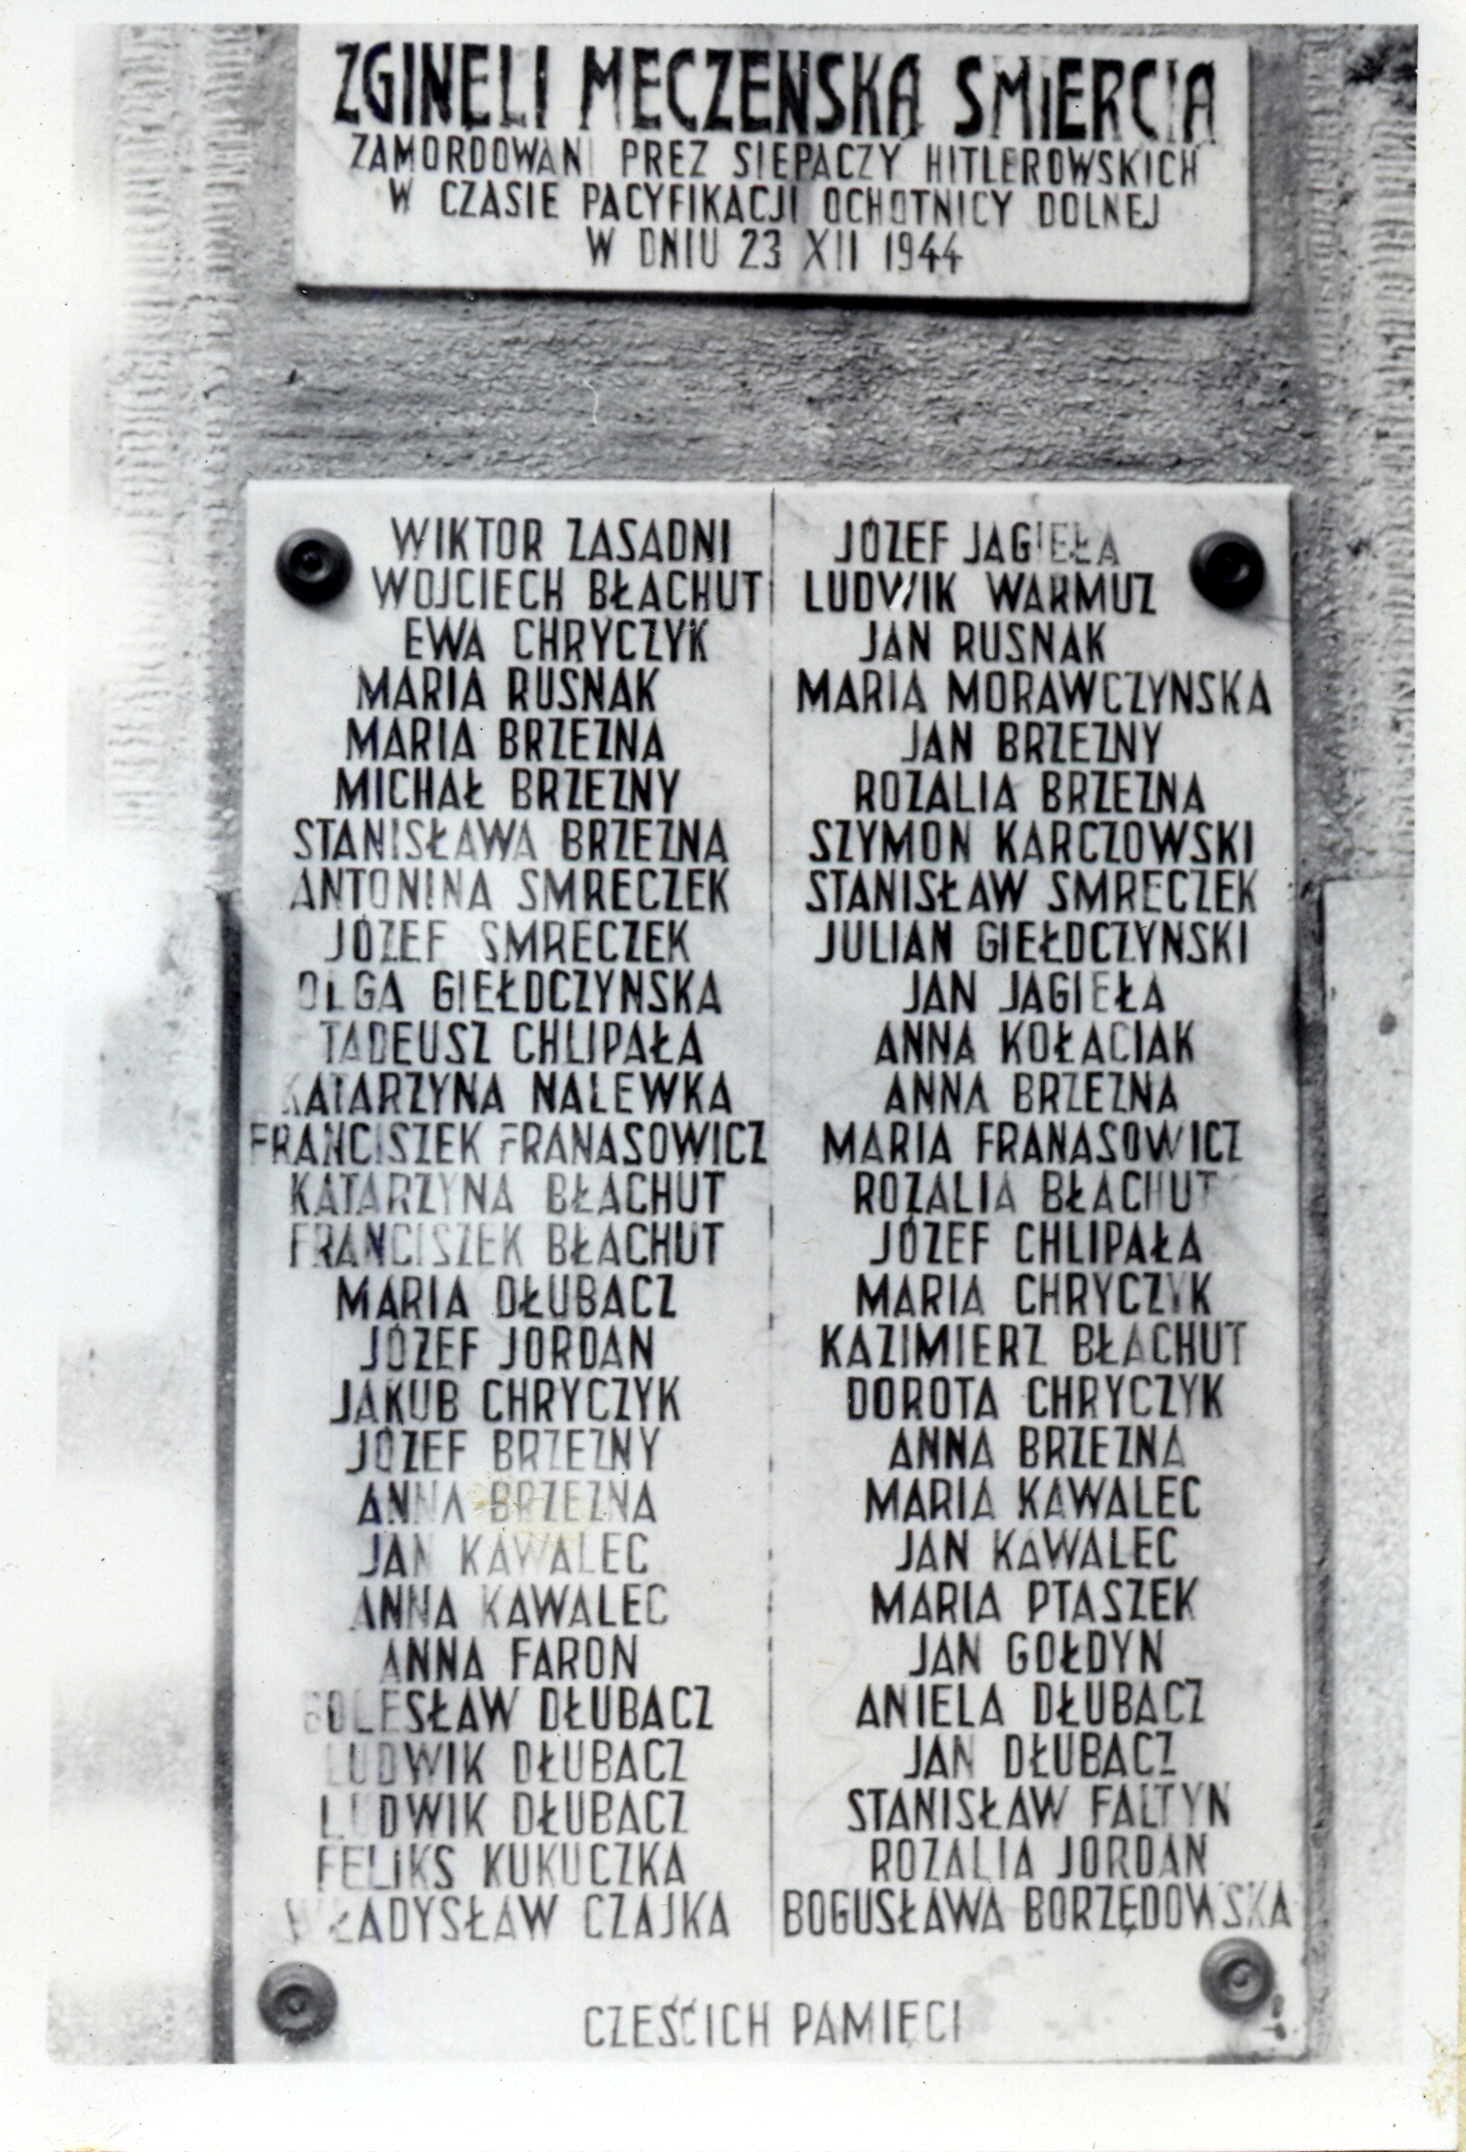 ZGINELI MECZENSKĄ SMiERCIĄ
ZAMORDOWANI PREZ SIEPACZY HITLEROWSKICH
W CZASIE PACYFIKACJI OCHOTNICY DOLNEJ
W DNIU 23 XII 1944
WIKTOR ZASADNI
WOJCIECH BŁACHUT
EWA CHRYCZYK
MARIA RUSNAK
MARIA BRZEZNA
MICHAŁ BRZEZNY
STANISŁAWA BRZEZNA
ANTONINA SMRECZEK
JÓZEF SMRECZEK
OLGA GIEŁDCZYNSKA
TADEUSZ CHLIPAŁA
KATARZYNA NALEWKA
FRANCISZEK FRANASOWICZ
KATARZYNA BŁACHUT
FRANCISZEK BŁACHUT
MARIA DŁUBACZ
JÓZEF JORDAN
JAKUB CHRYCZYK
JÓZEF BRZEZNY
ANNA BRZEZNA
JAN KAWALEC
ANNA KAWALEC
ANNA FARON
BOLESŁAW DŁUBACZ
LUDWIK DŁUBACZ
LUDWIK DŁUBACZ
FELIKS KUKUCZKA
WŁADYSŁAW CZAJKA
JÓZEF JAGIEŁA
LUDWIK WARMUZ
JAN RUSNAK
MARIA MORAWCZYNSKA
JAN BRZEZNY
ROZALIA BRZEZNA
SZYMON KARCZOWSKI
STANISŁAW SMRECZEK
JULIAN GIEŁDCZYNSKI
JAN JAGIEŁA
ANNA KOŁACIAK
ANNA BRZEZNA
MARIA FRANASOWICZ
ROZALIA BŁACHUT
JÓZEF CHLIPAŁA
MARIA CHRYCZYK
KAZIMIERZ BŁACHUT
DOROTA CHRYCZYK
ANNA BRZEZNA
MARIA KAWALEC
JAN KAWALEC
MARIA PTASZEK
JAN GOŁDYN
ANIELA DŁUBACZ
JAN DŁUBACZ
STANISŁAW FALTYN
ROZALIA JORDAN
BOGUSŁAWA BORZĘDOWSKA
CZEŚĆICH PAMIĘCI